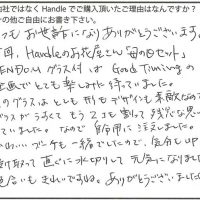 社ではなく Handle でご購入頂いたご理由はなんですか？
の他ご自由にお書き下さい。
つもお世話になりありがとうございます。
回、Handleのお花屋さん「母の日セット」
ENDOMグラス付は Good Timing の
企画でとても楽しみに待っていました。
のグラスはとても形もデザインも素敵なので
ラスがうすくてもう2コも割って残念な思い
ていました。なので即用に注文しました。
かわいいブーケも一緒でしたので、気分も
け取って直ぐに水切りして元気になりました
色合いもきれいですね。ありがとうございました